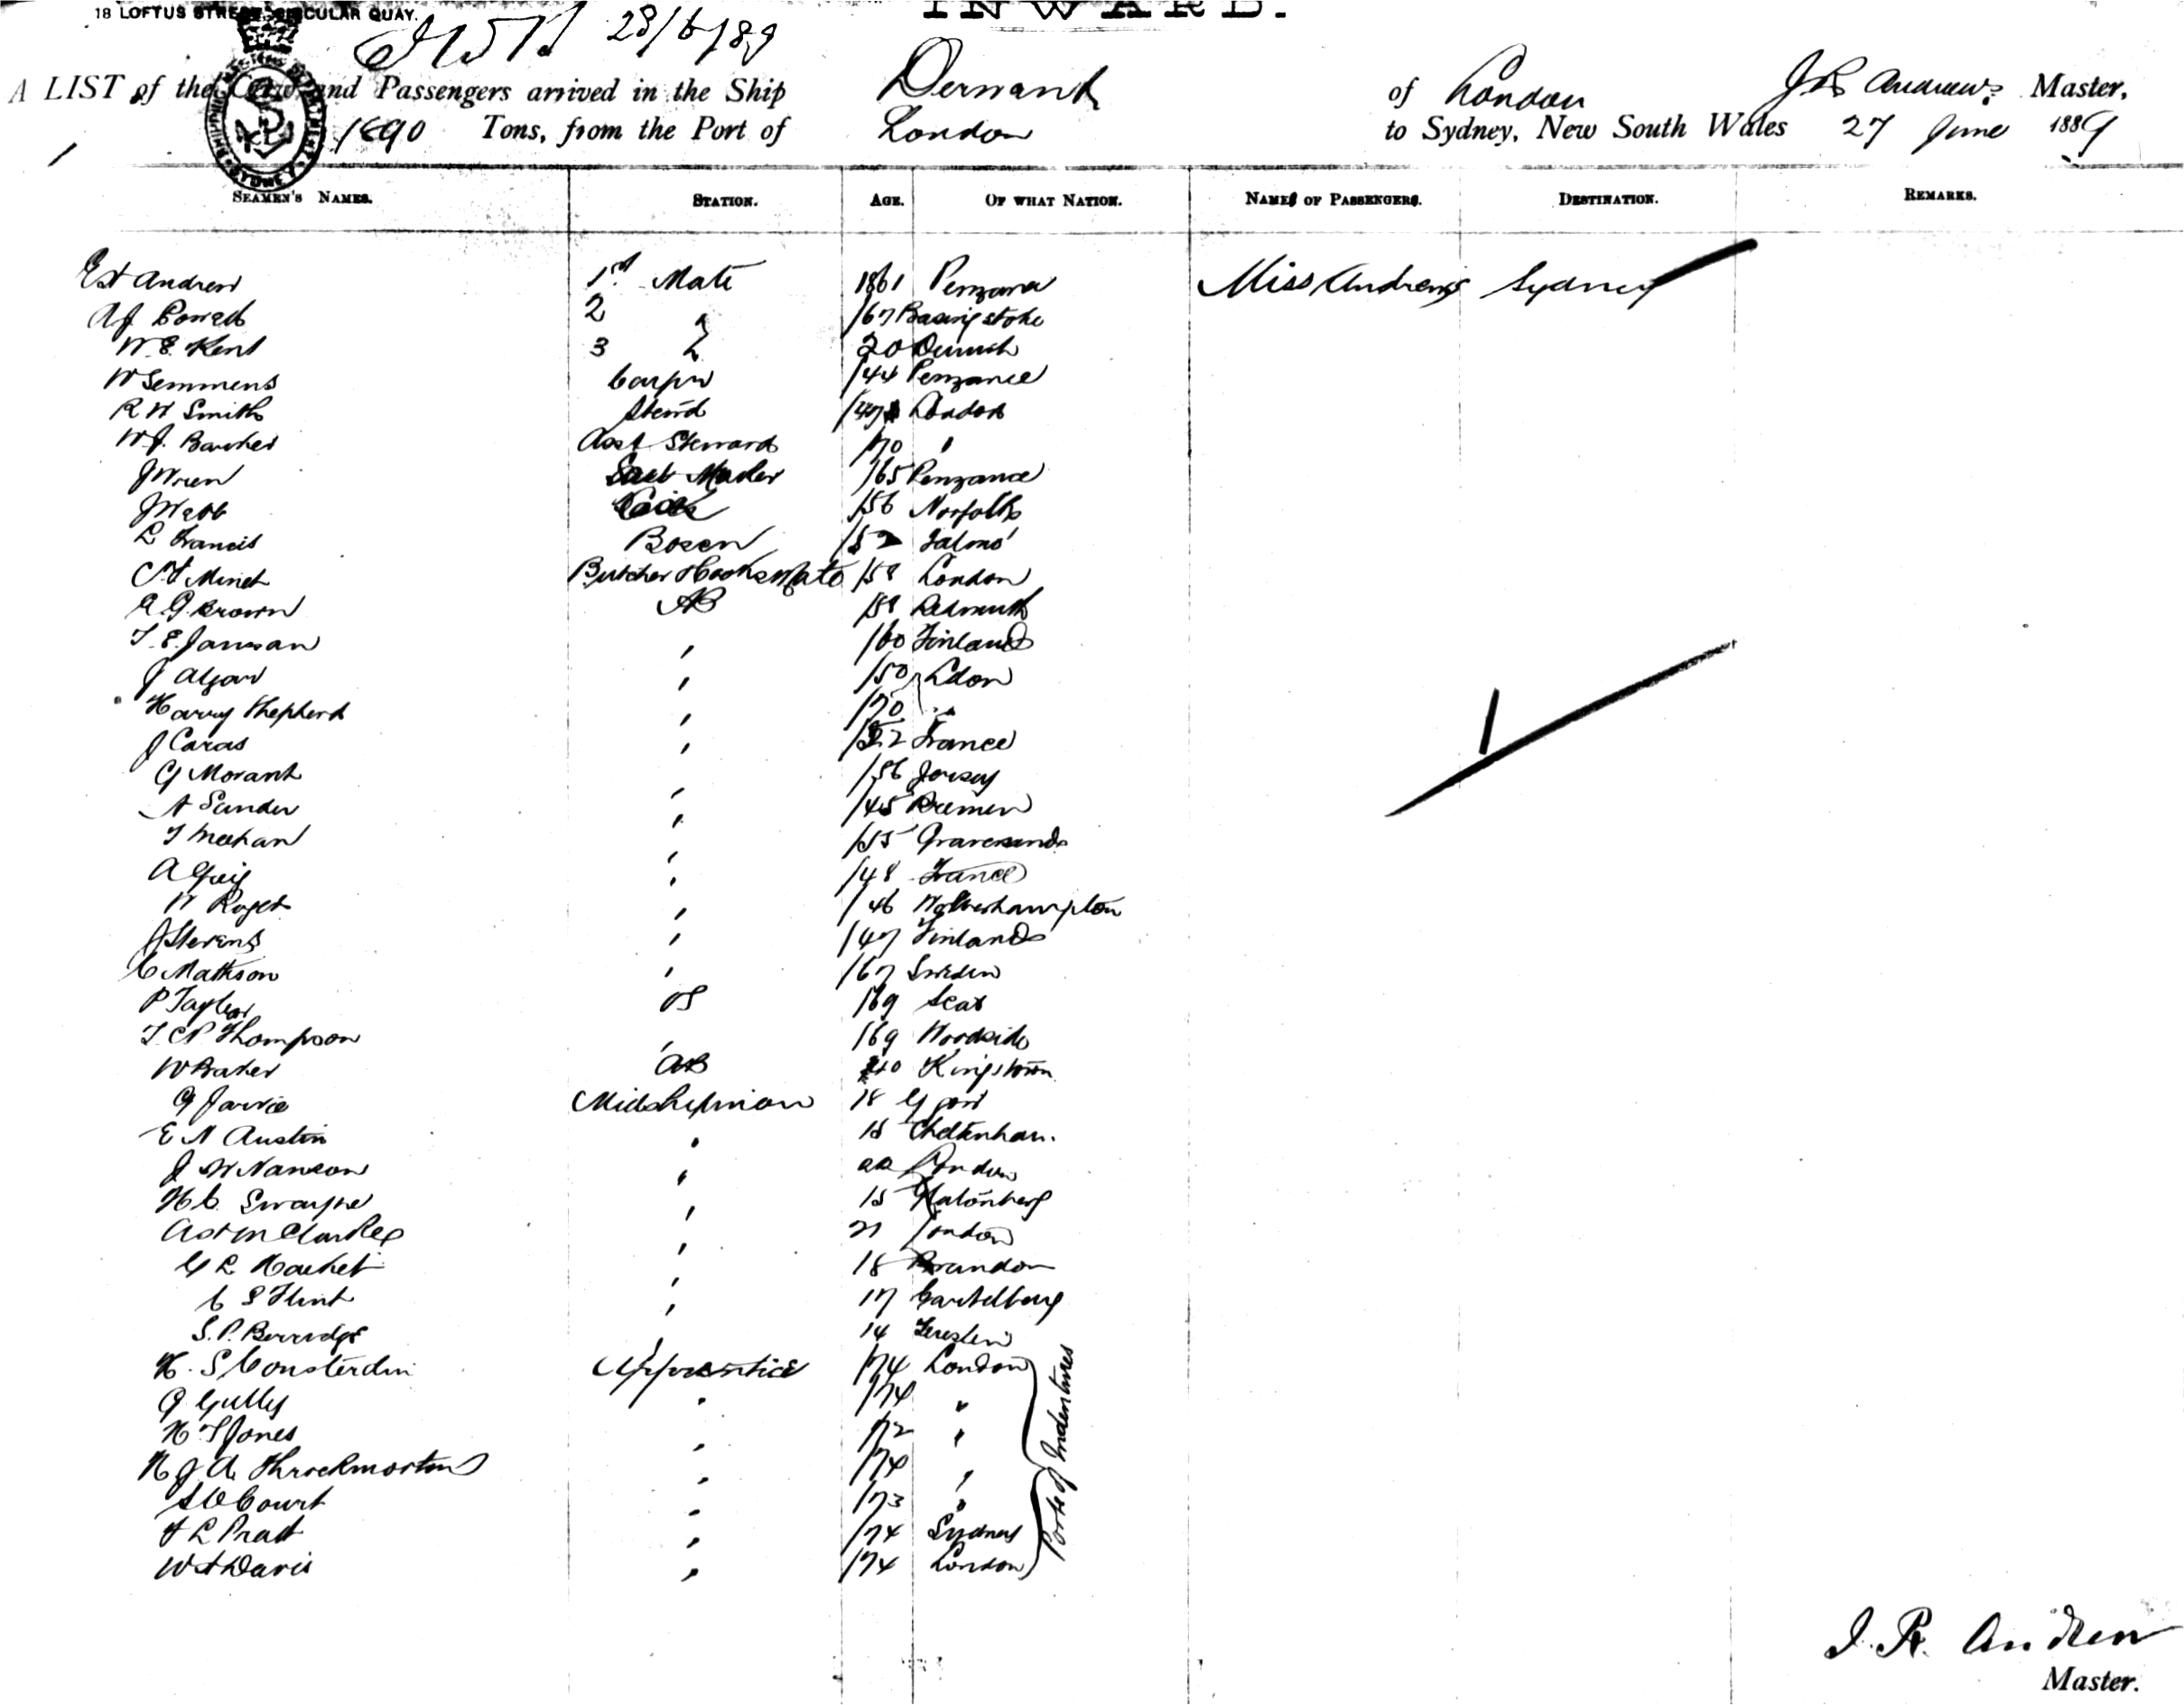 18 LOFTUS STREET, CIRCULAR QUAY.
INWARD.
28/6/89
A LIST of the Crew and Passengers arrived in the Ship Derwent of London J R Andrew. Master,
1890 Tons, from the Port of London to Sydney, New South Wales 27 June 1889
SEAMEN'S NAMES. STATION. AGE. OF WHAT NATION. NAMES OF PASSENGERS. DESTINATION. REMARKS.
Andrew 1st Mate 1861 Penzance Miss Andrews Sydney
A J Powell 2 " /67 Basingstoke
W. E. Kent 3 " 20
W Semmens Carpr /44 Penzance
R W Smith Stewd London
W J. Barker Asst Steward /70 "
J Wren Sail Maker /65 Penzance
J Webb Cook /56 Norfolk
L Francis Bosen /52 Falmo
Minet Butcher & Cooks Mate /58 London
Brown AB /58
T. E. Jansson " /60 Finland
J Algar " /50 Ldon
Harry Shepherd " /70 "
J Caras " /52 France
G Morant " /56 Jersey
A Sander " /45 Bremen
T Meehan " /55 Gravesend
A " /48 France
W Roger " /46 Wolverhampton
J Stevens " /47 Finland
C Mathson " /67 Sweden
P Taylor OS /69
T. C. P. Thompson " /69 Woodside
W Baker AB 40 Kingstown
G Jarvie Midshipman 18
E N Austin " 15 Cheltenham.
J W Nanson " 22 London
H C. Swayne " 15
Clarke " 21 London
G L Hachet " 18 Brandon
C S Flint " 17
S. P. Berridge " 14
H. S Consterdin Apprentice /74 London
G Gully " /74 "
H. T Jones " /72 "
N J A Throckmorton " /74 "
Court " /73 "
L Pratt " /74 Sydney
W A Davis " /74 London
Ports of Indentures
J. R. Andrew
Master.